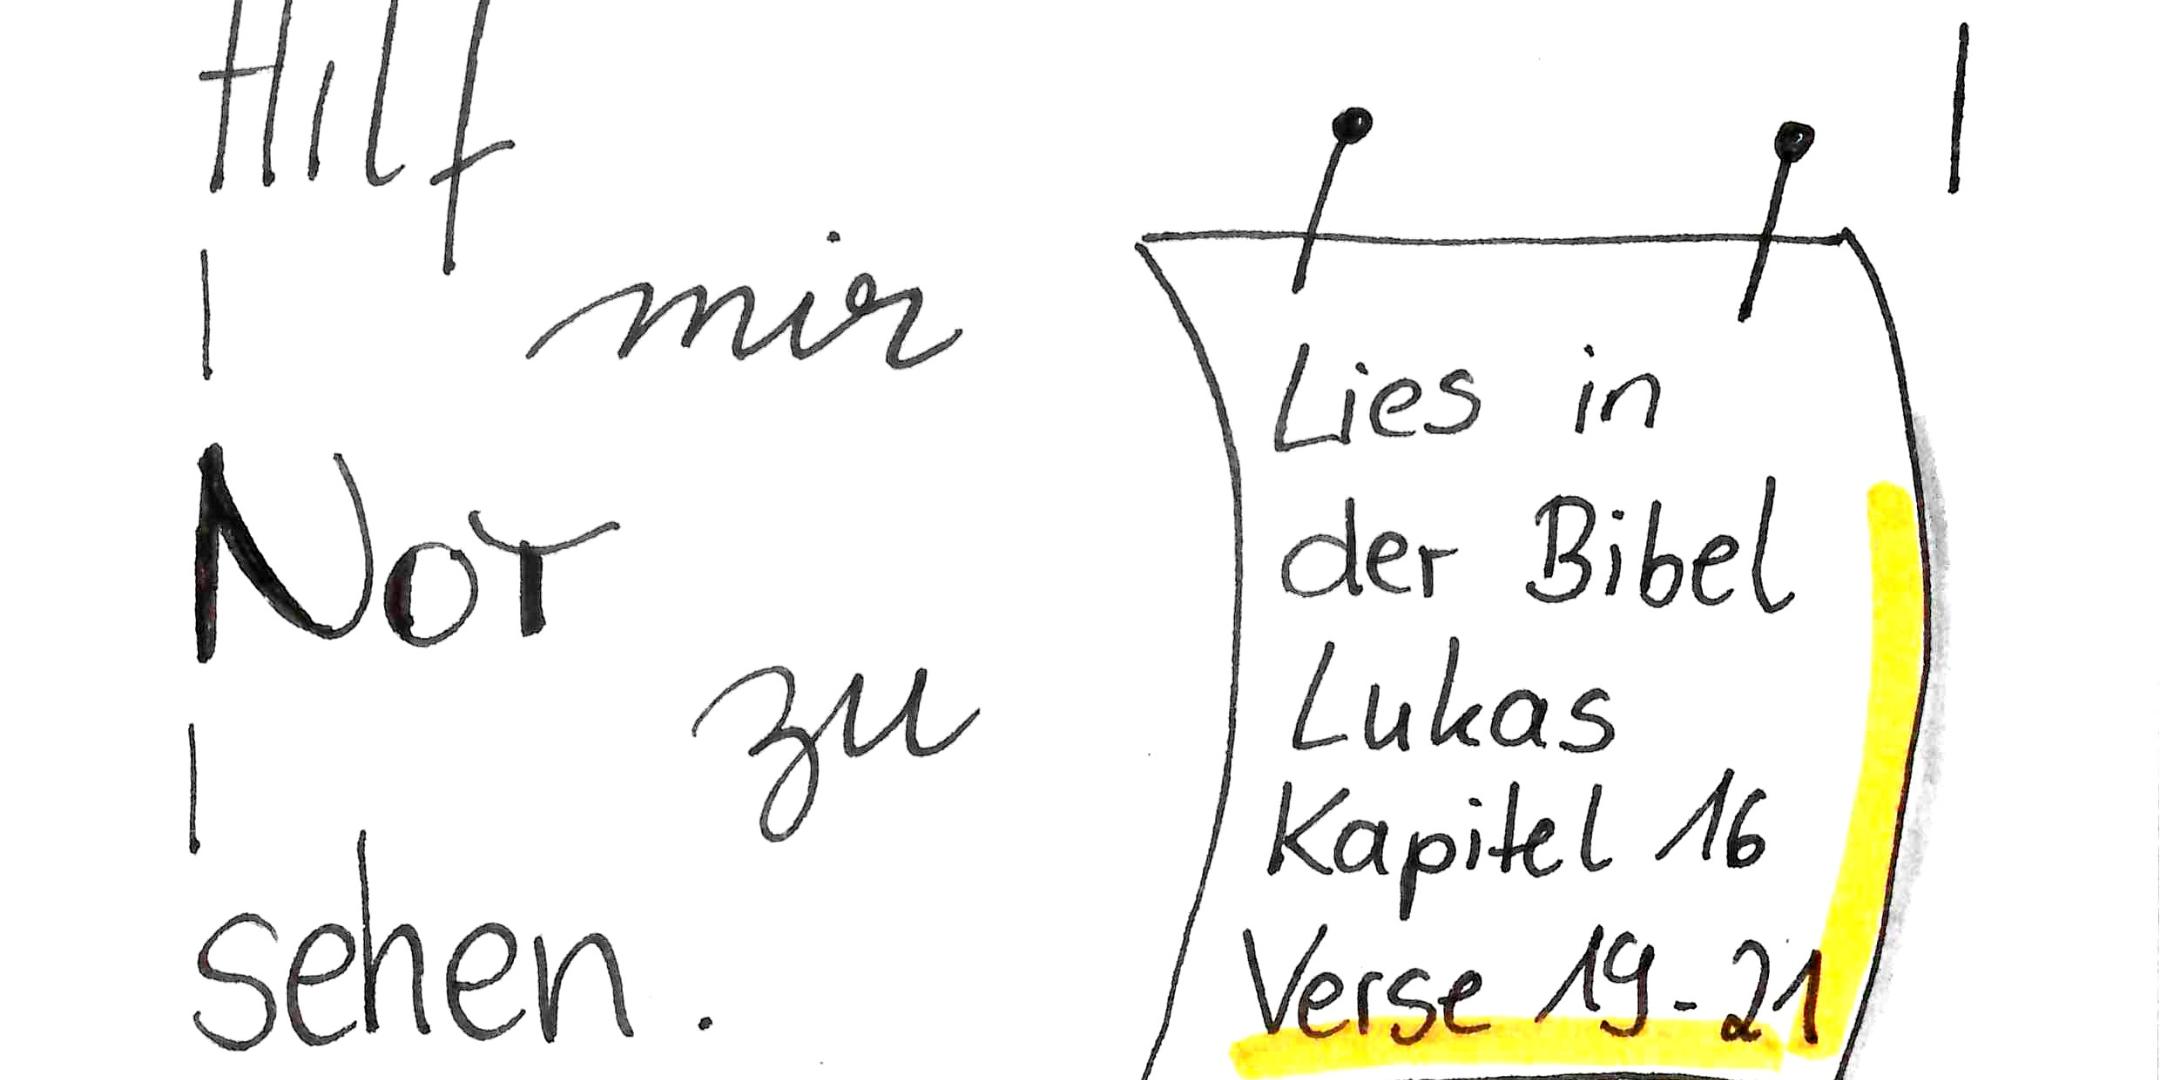 Hilf
mir
Not
zu
sehen.
Lies in
der Bibel
Lukas
Kapitel 16
Verse 19-21